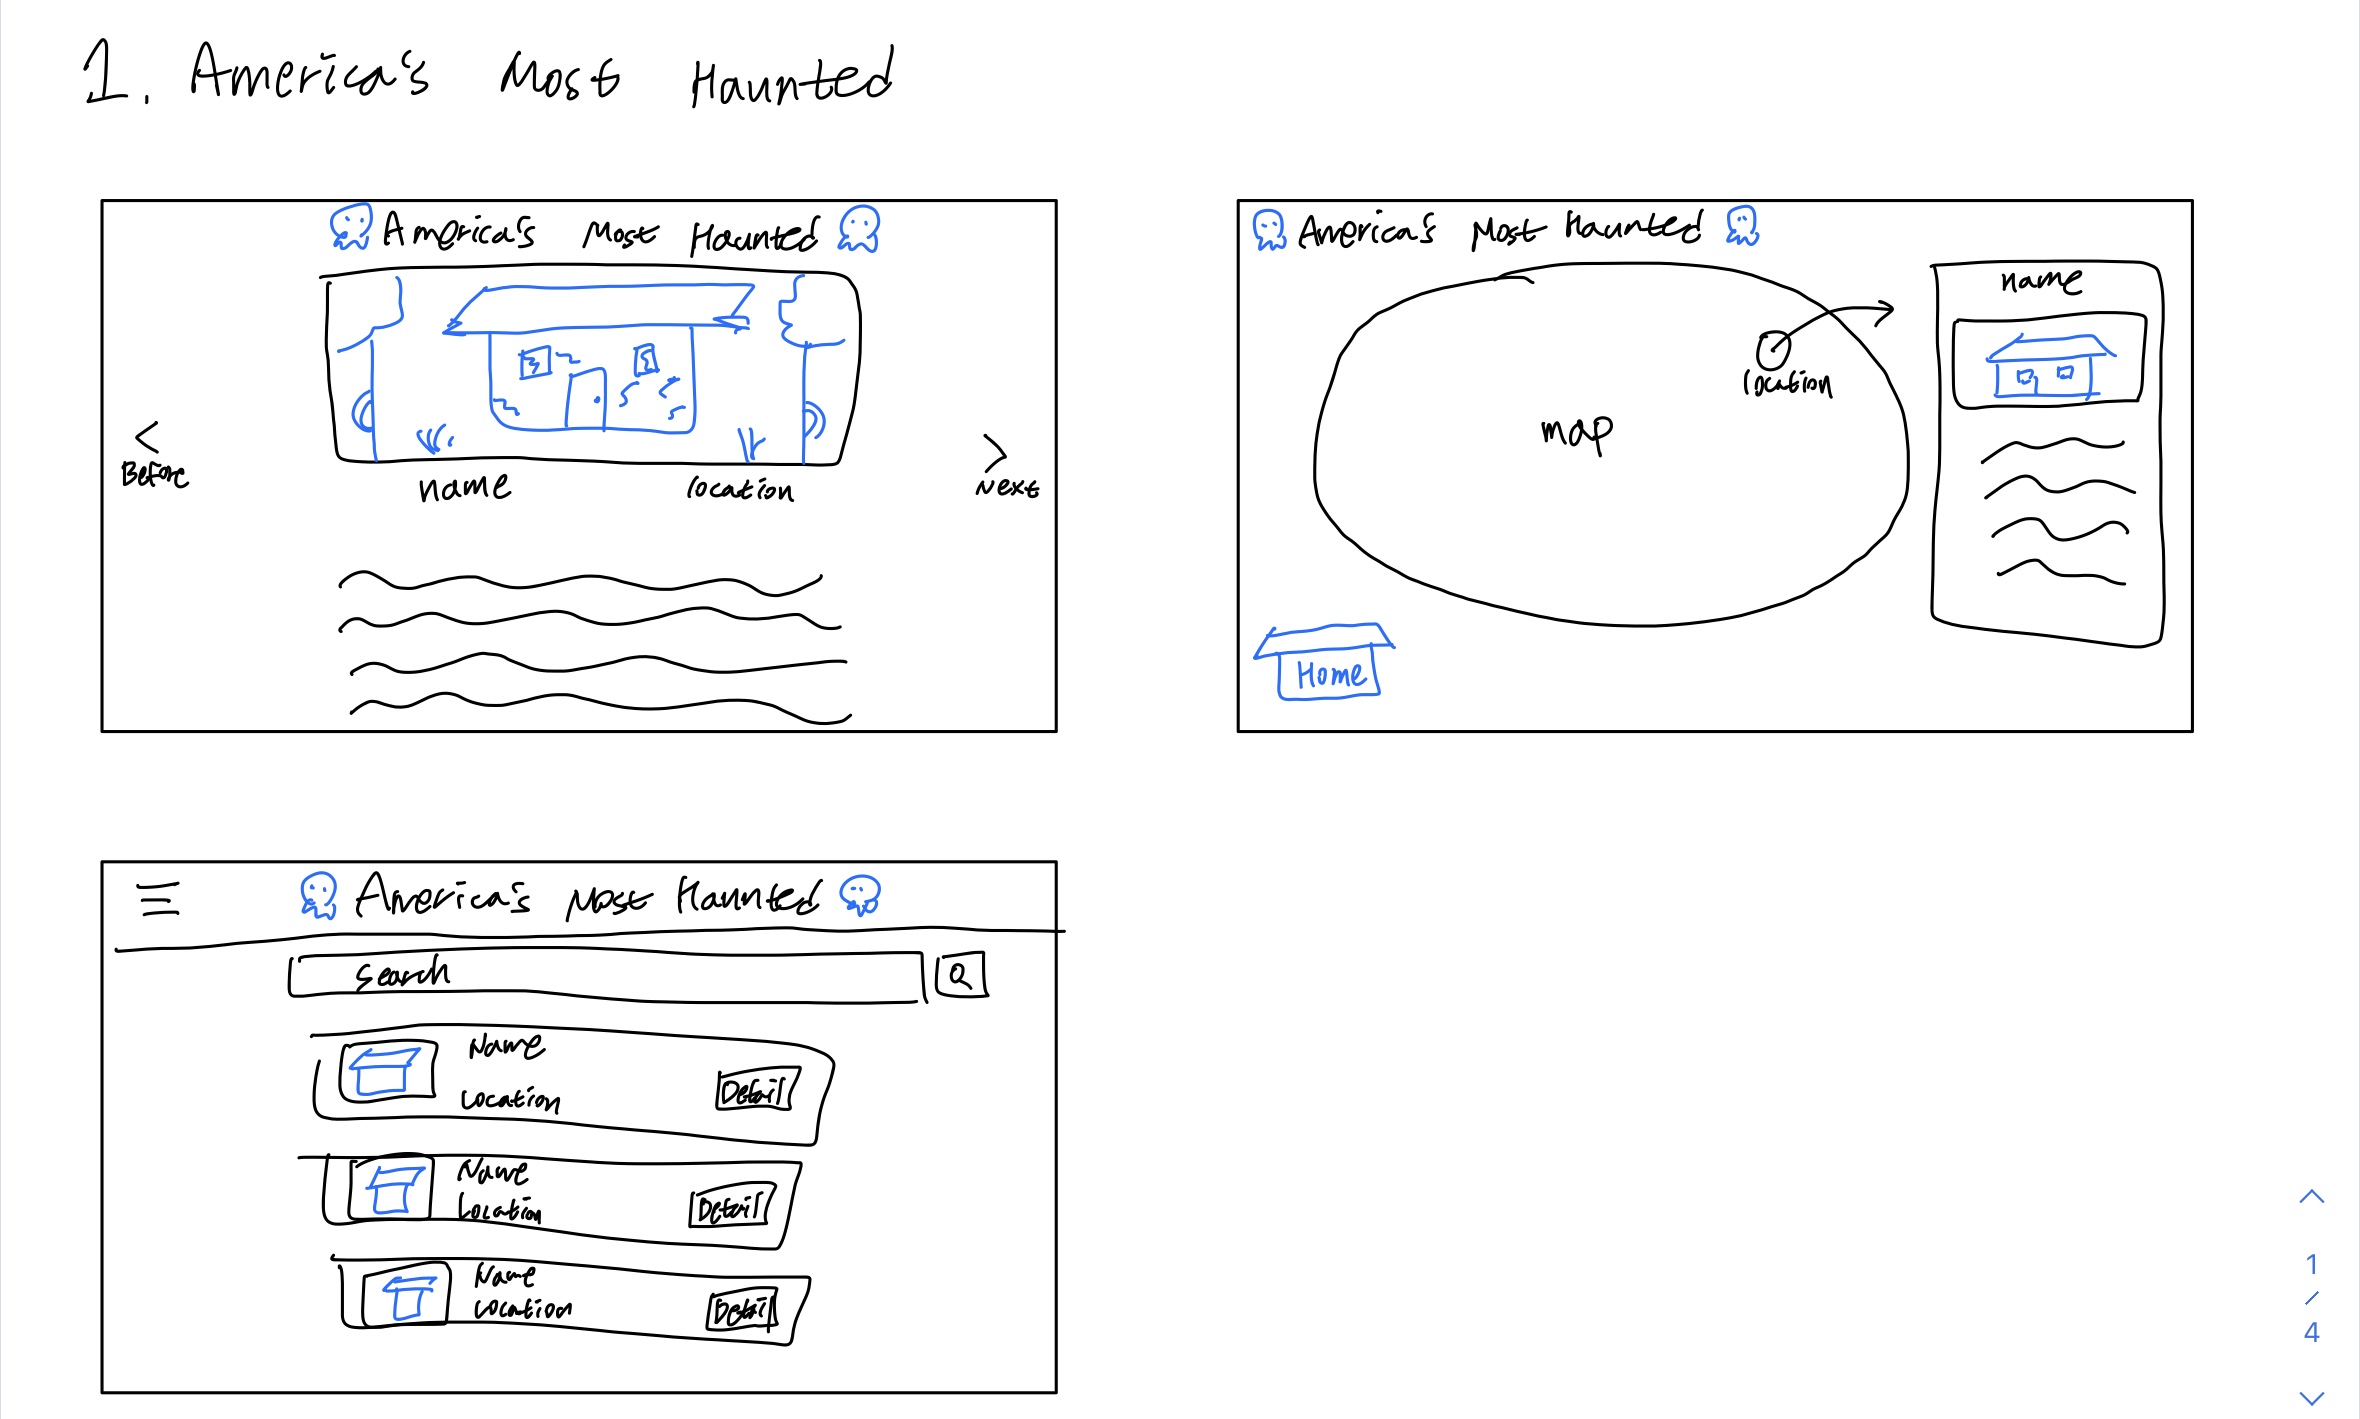 1. America's Most Haunted
America's Most Haunted
Before
name location
Next
America's Most Haunted
name
location
map
Home
America's Most Haunted
Search
Name
Location
Detail
Name
Location
Detail
Name
Location
Detail
1
/
4